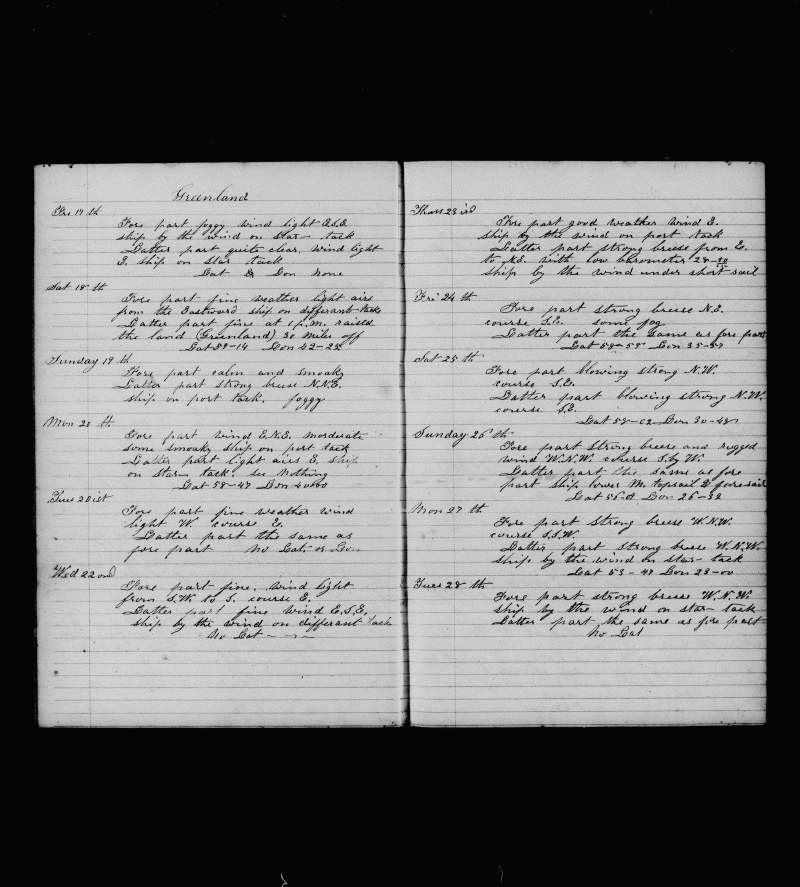 Greenland
Fri 17 th
Fore part foggy wind light E.S.E.
ship by the wind on Star- tack
Latter part quite clear. wind light
E. ship on Star tack
Lat & Lon none
Sat 18 th
Fore part fine weather light airs
from the Eastward ship on differant tacks
Latter part fine at 1 p.m. raised
the land (Greenland) 30 miles off
Lat 59-14 Lon 42-25
Sunday 19 th
Fore part calm and smoaky
Latter part strong breese N.N.E.
ship on port tack. foggy
Mon 20 th
Fore part wind E.N.E. morderate
some smoaky ship on port tack
Latter part light airs E. ship
on Star- tack. see nothing
Lat 58-47 Lon 40-00
Tues 20 ist
Fore part fine weather wind
light W. course E.
Latter part the same as
fore part No Lat. or Lon
Wed 22 ond
Fore part fine. wind light
from S.W. to S. course E.
Latter part fine wind E.S.E.
ship by the wind on differant tack
No Lat - - -
Thurs 23 ird
Fore part good weather wind E.
ship by the wind on port tack
Latter part strong breese from E.
to N.E. with low barometer 28-80
ship by the wind under short sail
Fri 24 th
Fore part strong breese N.E.
course S.E. some fog
Latter part the same as fore part
Lat 58-55 Lon 35-37
Sat 25 th
Fore part blowing strong N.W.
course S.E.
Latter part blowing strong N.W.
course S.E.
Lat 58-02 Lon 30-48
Sunday 26 th
Fore part strong breese and rugged
wind W.N.W. course S. by W.
Latter part the same as fore
part ship lower M. topsail & foresail
Lat 56-01 Lon 26-32
Mon 27 th
Fore part strong breese W.N.W.
course S.S.W.
Latter part strong breese W.N.W.
ship by the wind on star- tack
Lat 53-47 Lon 28-00
Tues 28 th
Fore part strong breese W.N.W.
ship by the wind on star- tack
Latter part the same as fore part
No Lat